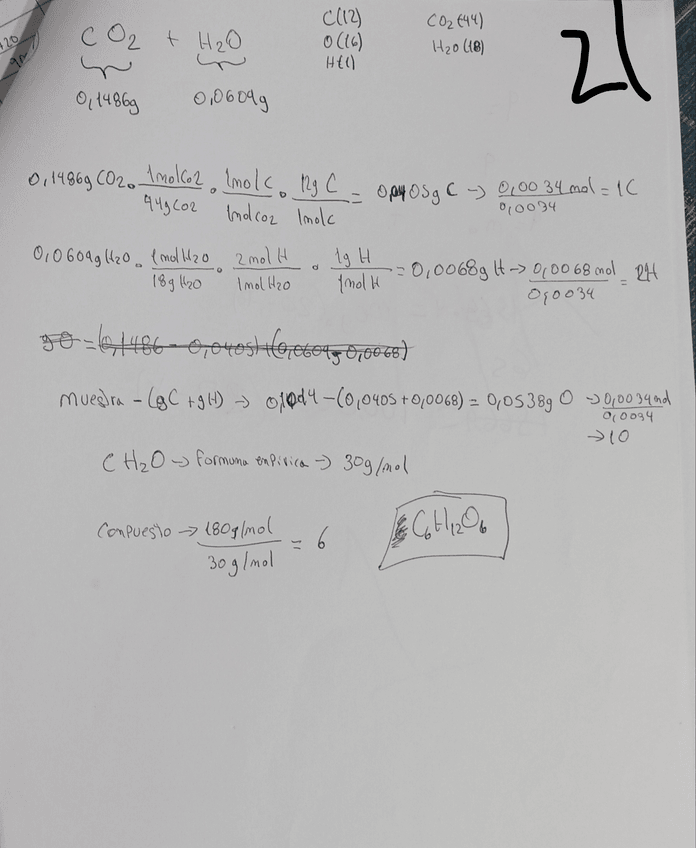 21
C(12) CO2 (44)
O(16) H2O (18)
H(1)
CO2 + H2O
0,1486g 0,0604g
0,1486g CO2 · 1molCO2/44gCO2 · 1molC/1molCO2 · 12g C/1molC = 0,0405g C → 0,0034 mol/0,0034 = 1C
0,0604g H2O · 1molH2O/18g H2O · 2 mol H/1mol H2O · 1g H/1mol H = 0,0068g H → 0,0068 mol/0,0034 = 2H
gO = (0,1486 - 0,0405) + (0,0604g 0,0068)
muestra - (gC + gH) → - (0,0405 + 0,0068) = 0,0538g O → 0,0034mol/0,0034
→ 1O
CH2O → Formuna empirica → 30g/mol
Conpuesto → 180g/mol/30g/mol = 6
C6H12O6